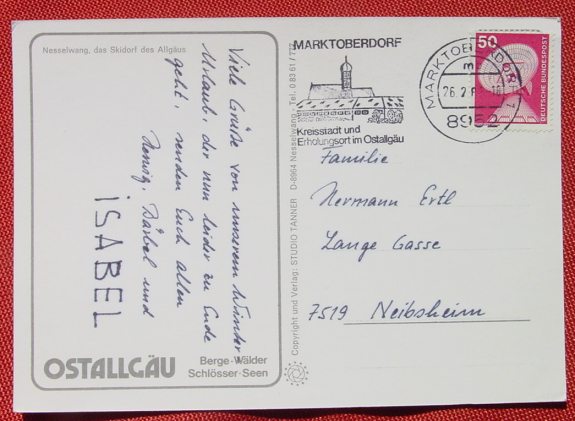 Nesselwang, das Skidorf des Allgäus
Viele Grüße von unserem Winter
Urlaub, der nun leider zu Ende
geht, senden Euch allen
Bärbel und
ISABEL
OSTALLGÄU
Berge-Wälder
Schlösser-Seen
Copyright und Verlag: STUDIO TANNER D-8964 Nesselwang, Tel. 0 83 61 / 772
MARKTOBERDORF
Kreisstadt und
Erholungsort im Ostallgäu
MARKTOBERDORF 1
26.2.
8952
50
DEUTSCHE BUNDESPOST
Familie
Hermann Ertl
Lange Gasse
7519 Neibsheim